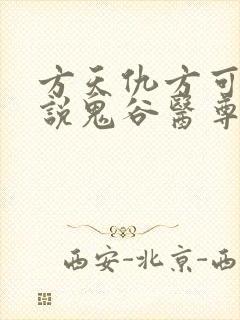 方天仇方可
說鬼谷醫尊
西安-北京-西